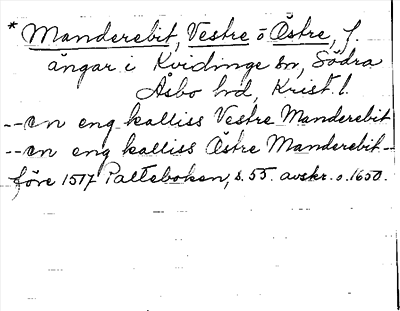 * Manderebit, Vestre o Östre, f.
ängar i Kvidinge sn, Södra
Åsbo hd, Krist. l.
-- en eng kalliss Vestre Manderebit
-- en eng kalliss Östre Manderebit --
före 1517 Palteboken, s. 55. avskr. o. 1650.